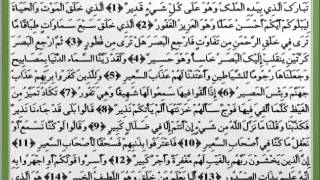 تَبَارَكَ الَّذِي بِيَدِهِ الْمُلْكُ وَهُوَ عَلَى كُلِّ شَيْءٍ قَدِيرٌ ﴿1﴾ الَّذِي خَلَقَ الْمَوْتَ وَالْحَيَاةَ
لِيَبْلُوَكُمْ أَيُّكُمْ أَحْسَنُ عَمَلًا وَهُوَ الْعَزِيزُ الْغَفُورُ ﴿2﴾ الَّذِي خَلَقَ سَبْعَ سَمَاوَاتٍ طِبَاقًا مَا
تَرَى فِي خَلْقِ الرَّحْمَنِ مِنْ تَفَاوُتٍ فَارْجِعِ الْبَصَرَ هَلْ تَرَى مِنْ فُطُورٍ ﴿3﴾ ثُمَّ ارْجِعِ الْبَصَرَ
كَرَّتَيْنِ يَنْقَلِبْ إِلَيْكَ الْبَصَرُ خَاسِئًا وَهُوَ حَسِيرٌ ﴿4﴾ وَلَقَدْ زَيَّنَّا السَّمَاءَ الدُّنْيَا بِمَصَابِيحَ
وَجَعَلْنَاهَا رُجُومًا لِلشَّيَاطِينِ وَأَعْتَدْنَا لَهُمْ عَذَابَ السَّعِيرِ ﴿5﴾ وَلِلَّذِينَ كَفَرُوا بِرَبِّهِمْ عَذَابُ
جَهَنَّمَ وَبِئْسَ الْمَصِيرُ ﴿6﴾ إِذَا أُلْقُوا فِيهَا سَمِعُوا لَهَا شَهِيقًا وَهِيَ تَفُورُ ﴿7﴾ تَكَادُ تَمَيَّزُ مِنَ
الْغَيْظِ كُلَّمَا أُلْقِيَ فِيهَا فَوْجٌ سَأَلَهُمْ خَزَنَتُهَا أَلَمْ يَأْتِكُمْ نَذِيرٌ ﴿8﴾ قَالُوا بَلَى قَدْ جَاءَنَا نَذِيرٌ
فَكَذَّبْنَا وَقُلْنَا مَا نَزَّلَ اللَّهُ مِنْ شَيْءٍ إِنْ أَنْتُمْ إِلَّا فِي ضَلَالٍ كَبِيرٍ ﴿9﴾ وَقَالُوا لَوْ كُنَّا نَسْمَعُ أَوْ
نَعْقِلُ مَا كُنَّا فِي أَصْحَابِ السَّعِيرِ ﴿10﴾ فَاعْتَرَفُوا بِذَنْبِهِمْ فَسُحْقًا لِأَصْحَابِ السَّعِيرِ ﴿11﴾
إِنَّ الَّذِينَ يَخْشَوْنَ رَبَّهُمْ بِالْغَيْبِ لَهُمْ مَغْفِرَةٌ وَأَجْرٌ كَبِيرٌ ﴿12﴾ وَأَسِرُّوا قَوْلَكُمْ أَوِ اجْهَرُوا بِهِ
إِنَّهُ عَلِيمٌ بِذَاتِ الصُّدُورِ ﴿13﴾ أَلَا يَعْلَمُ مَنْ خَلَقَ وَهُوَ اللَّطِيفُ الْخَبِيرُ ﴿14﴾ هُوَ الَّذِي